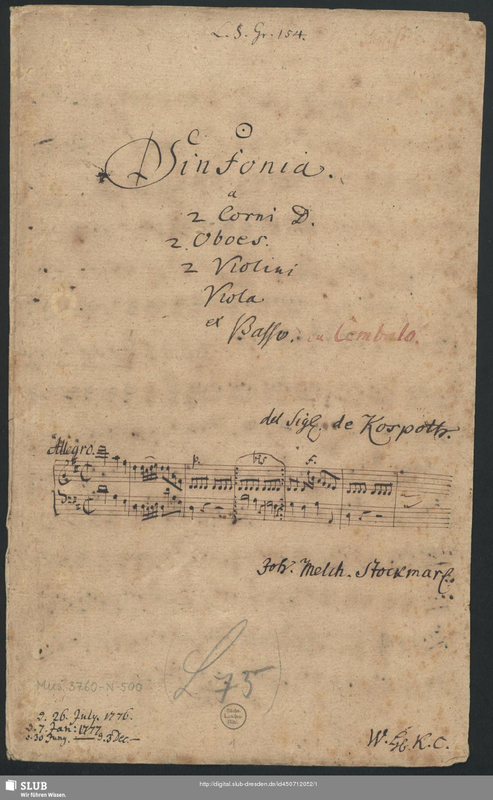 L. S. Gr. 154.
C. O
Sinfonia.
a
2 Corni D.
2 Oboes.
2 Violini
Viola
et
Basso. ou Cembalo.
del Sig. de Kospoth.
Allegro.
p. f.
Joh. Melch. Stockmar
L 75
Mus. 3760-N-500
d. 26. July. 1776.
d. 7. Jan: 1777
d. 30 Juny. d. 3 Dec.
W. K. C.
SLUB
Wir führen Wissen.
http://digital.slub-dresden.de/id456712052/1